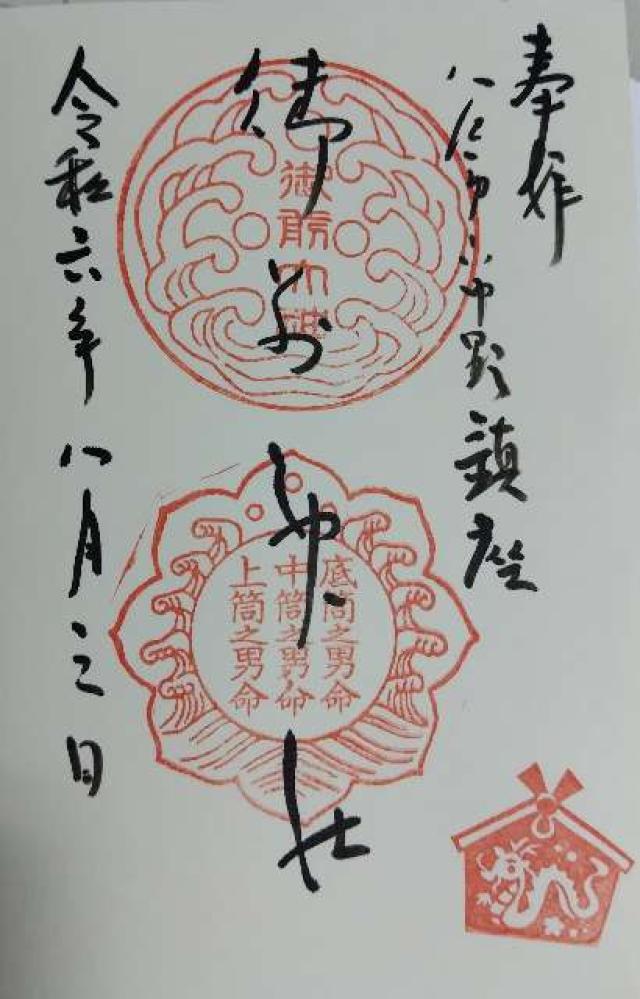 奉拝
八戸市小中野鎮座
御前神社
御前大神
底筒之男命
中筒之男命
上筒之男命
令和六年八月三日